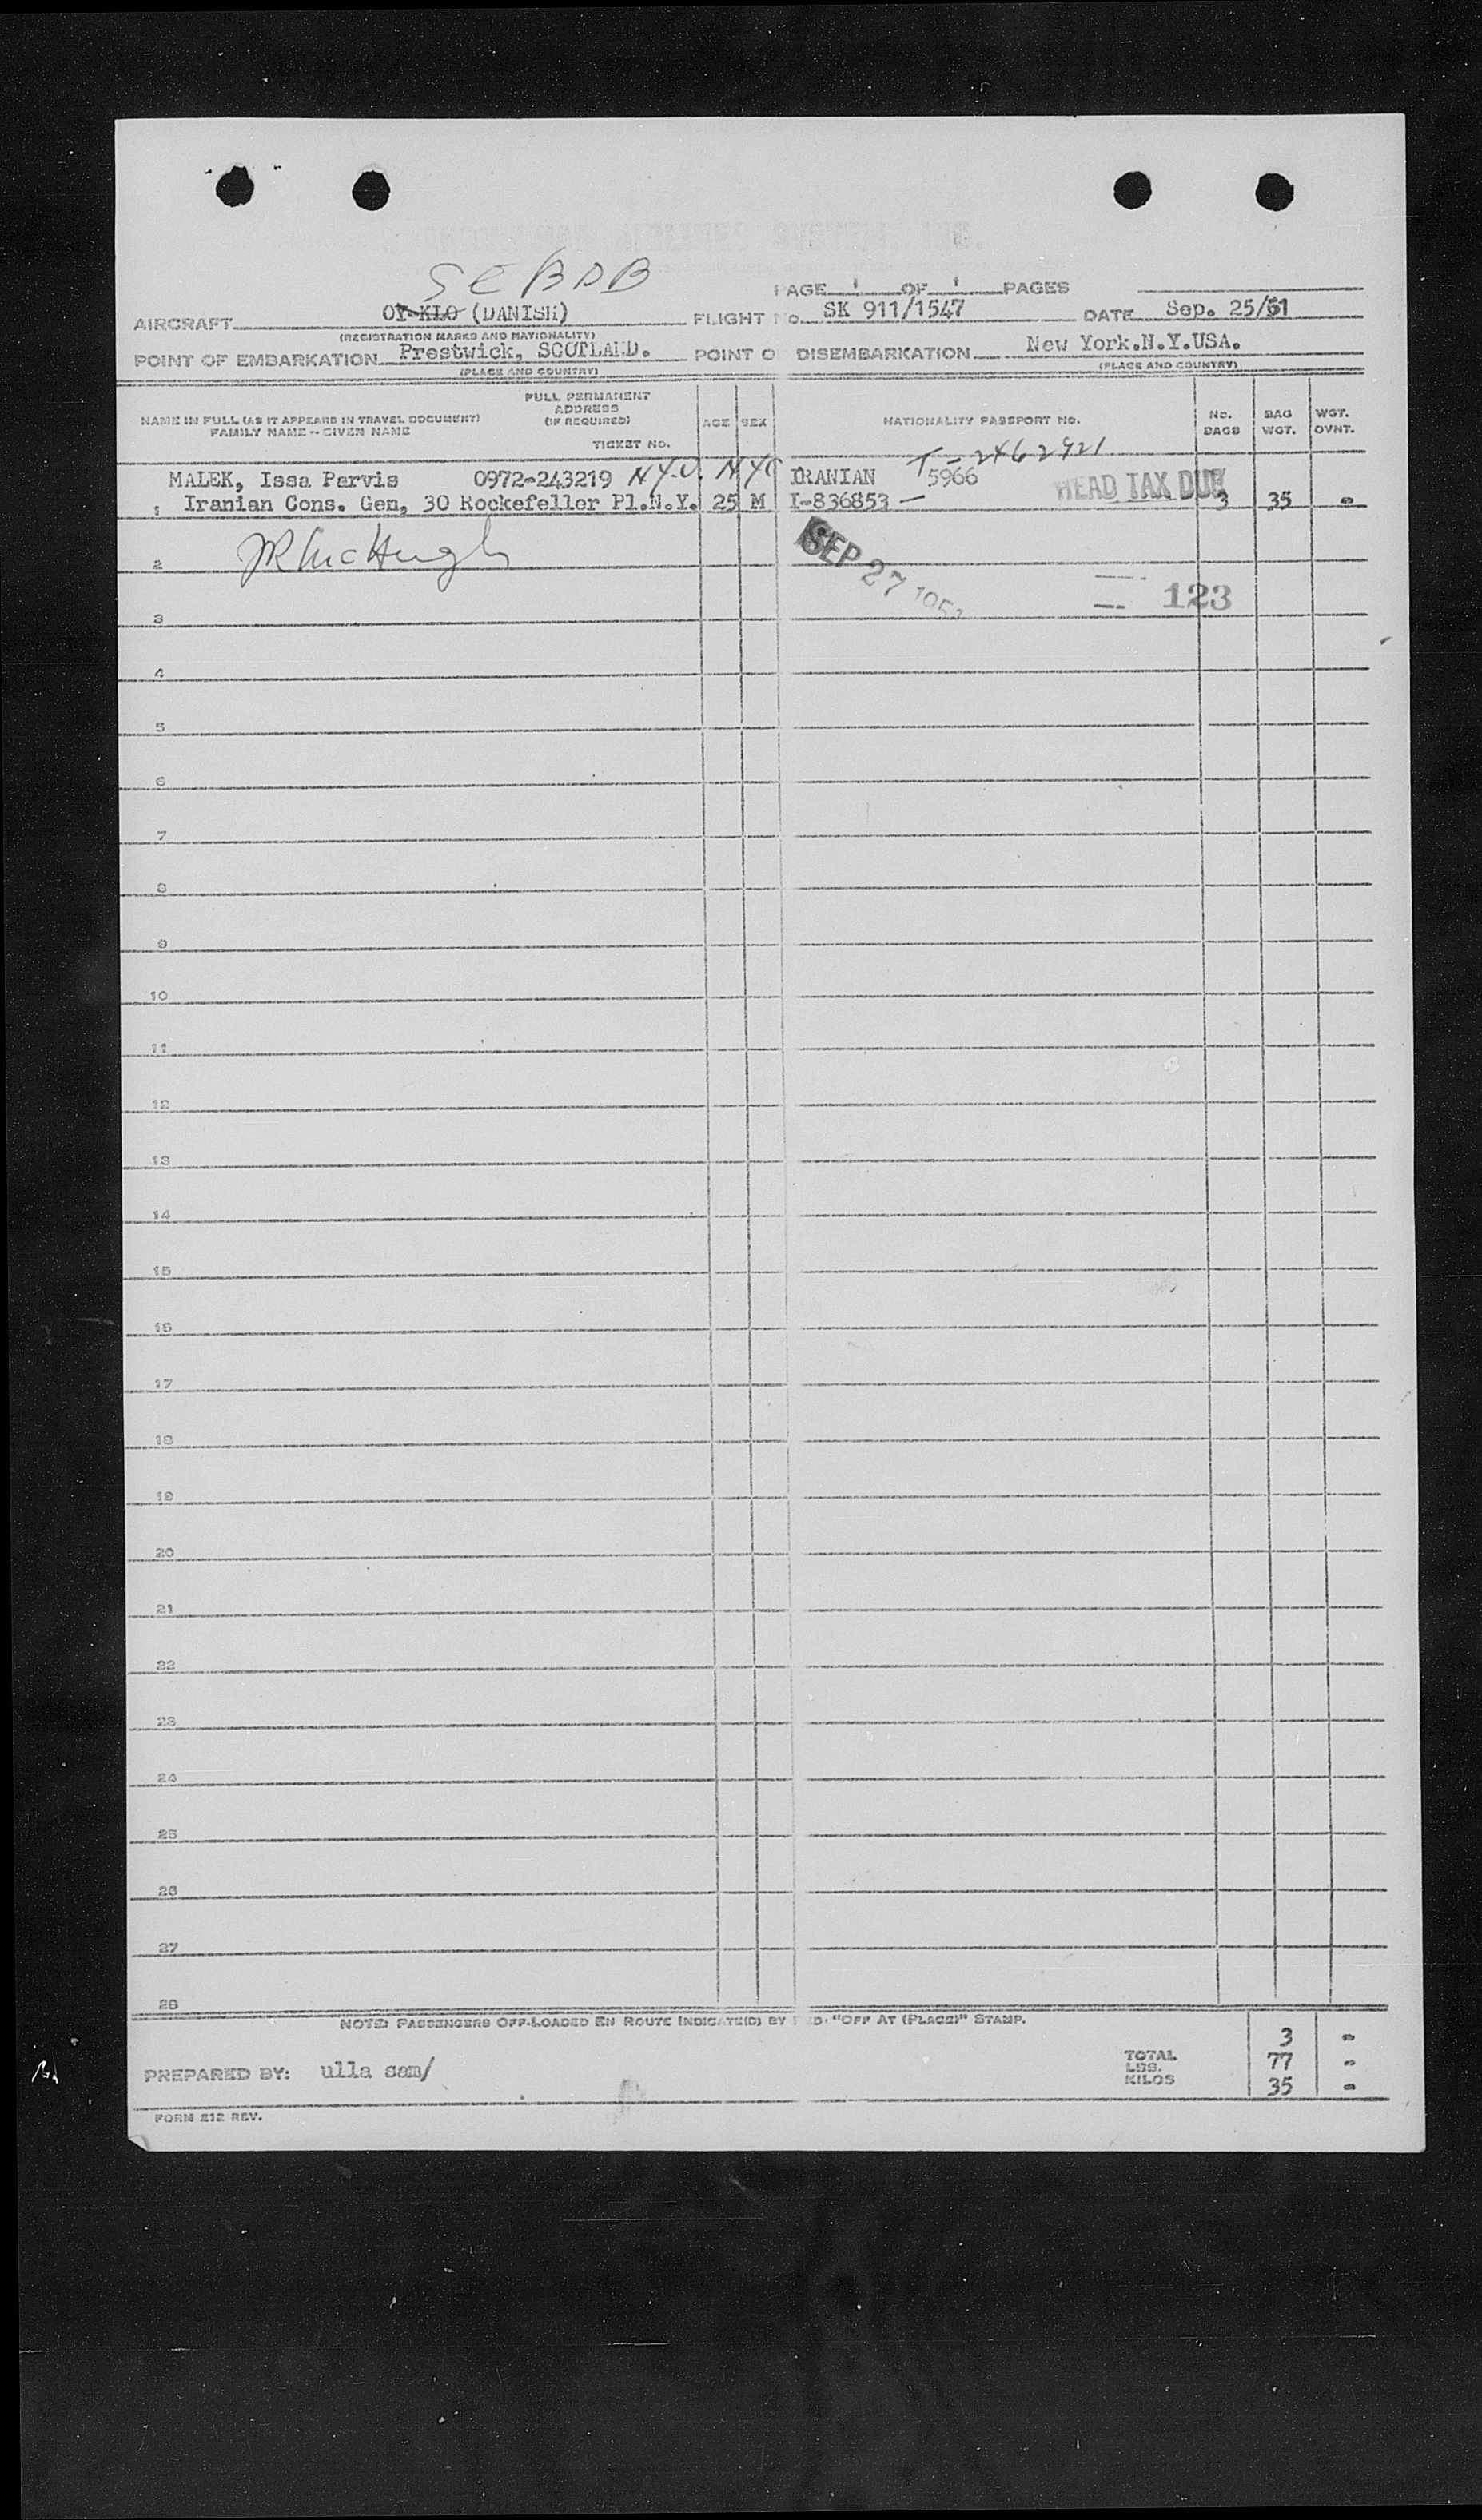 SEBDB
PAGE 1 OF 1 PAGES
AIRCRAFT OY-KLO (DANISH) FLIGHT No. SK 911/1547 DATE Sep. 25/51
(REGISTRATION MARKS AND NATIONALITY)
POINT OF EMBARKATION Prestwick, SCOTLAND. POINT O DISEMBARKATION New York.N.Y.USA.
(PLACE AND COUNTRY) (PLACE AND COUNTRY)
NAME IN FULL (AS IT APPEARS IN TRAVEL DOCUMENT)
FAMILY NAME -- GIVEN NAME
FULL PERMANENT
ADDRESS
(IF REQUIRED)
TICKET NO.
AGE SEX NATIONALITY PASSPORT NO.
No.
BAGS
BAG
WGT.
WGT.
OVNT.
T-2462921
MALEK, Issa Parvis 0972-243219 N.Y.U. NYC IRANIAN 5966 HEAD TAX DUE
1 Iranian Cons. Gen, 30 Rockefeller Pl.N.Y. 25 M I-836853 — 3 35 -
2 JR McHugh
SEP 27 1951
123
3
4
5
6
7
8
9
10
11
12
13
14
15
16
17
18
19
20
21
22
23
24
25
26
27
28
NOTE: PASSENGERS OFF-LOADED EN ROUTE INDICATE(D) BY "OFF AT (PLACE)" STAMP.
PREPARED BY: ulla sam/
TOTAL 3 -
LBS. 77 -
KILOS 35 -
FORM 212 REV.